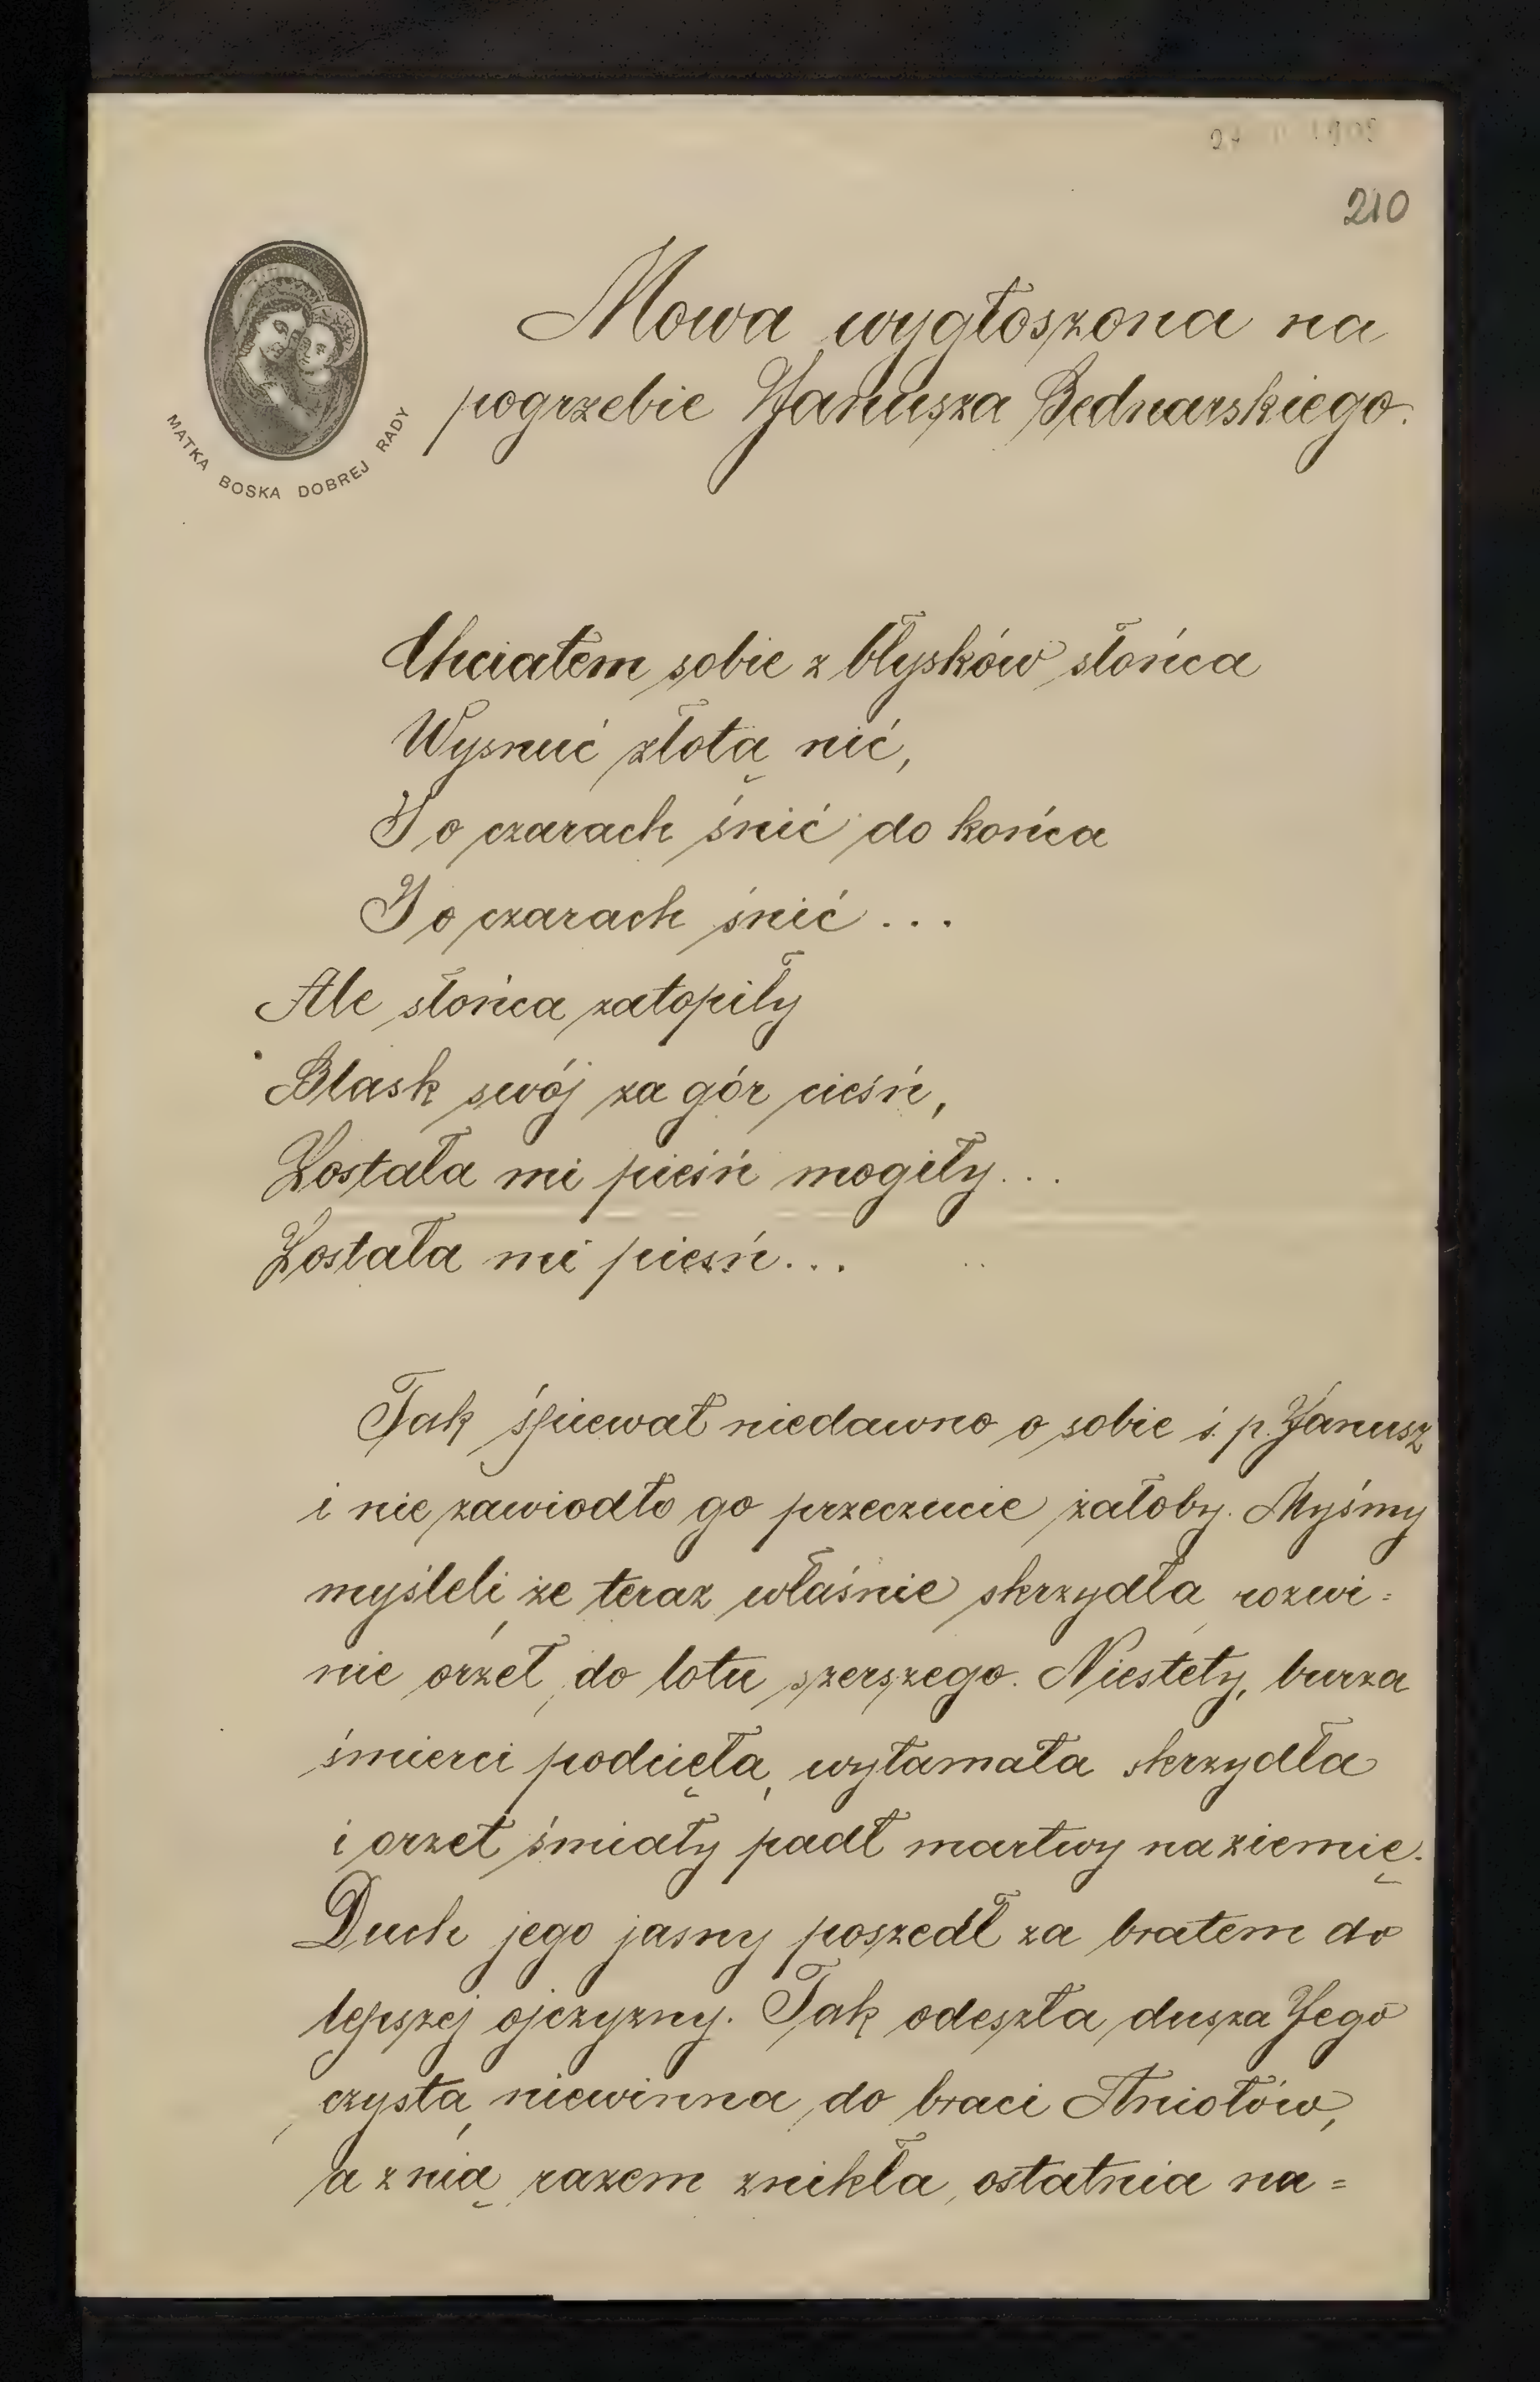 210
Mowa wygłoszona na
pogrzebie Janusza Bednarskiego.
MATKA BOSKA DOBREJ RADY
Chciałem sobie z błysków słońca
Wysnuć złotą nić,
I o czarach śnić do końca
I o czarach śnić...
Ale słońca zatopiły
Blask swój za gór cieśń,
Została mi pieśń mogiły...
Została mi pieśń...
Tak śpiewał niedawno o sobie ś. p. Janusz
i nie zawiodło go przeczucie żałoby. Myśmy
myśleli, że teraz właśnie skrzydła rozwi=
nie orzeł, do lotu szerszego. Niestety, burza
śmierci podcięła, wyłamała skrzydła
i orzeł śmiały padł martwy na ziemię.
Duch jego jasny poszedł za bratem do
lepszej ojczyzny. Tak odeszła dusza Jego
czysta, niewinna, do braci Aniołów,
a z nią razem znikła, ostatnia na=